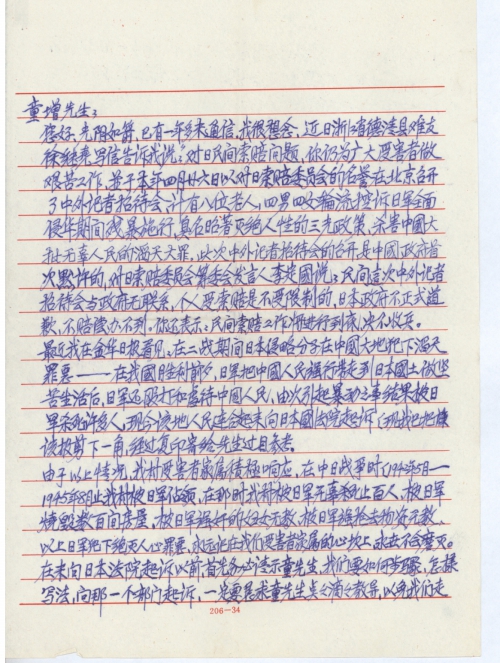 童增先生：
您好，光阴如箭，已有一年多未通信，我很想念，近日浙江省德清县难友
徐继来写信告诉我说，对日民间索赔问题，你仍为广大受害者做
艰苦工作，並于来年四月廿六日以对日索赔委员会的名誉在北京召开
了中外记者招待会，计有八位老人，四男四女轮流控诉日军全面
侵华期间残暴施行，臭名昭著灭绝人性的三光政策，杀害中國大
批无辜人民的滔天大罪，此次中外记者招待会的召开，是中國政府首
次默许的，对日索赔委员会筹委会发言人李定國说：民间这次中外记者
招待会与政府无联系，个人要索赔是不要限制的，日本政府不正式道
歉，不赔偿办不到。你还表示：民间索赔工作将进行到底，决不收兵。
最近我在金华日报看见，在二战期间日本侵略分子在中國大地犯下滔天
罪恶——在我國胜利前夕，日军把中國人民强行装走到日本國土做
苦生活后，日军还殴打和虐待中國人民，由次引起暴动之事结果被日
军杀死许多人，现今该地人民连合起来向日本國法院起诉（现我已把
该报剪下一角，经过复印寄给先生过目参考。
由于以上情况，我村受害者家属信极响应，在中日战争时（1942年5月—
1945年8月止我村被日军佔领，在那时我村被日军无辜杀死上百人，被日军
烧毁数百间房屋，被日军强奸的妇女无数，被日军强抢去物资无数，
以上日军犯下绝灭人心罪恶，永远记在我们受害者家属的心坎上永世不会磨灭。
在未向日本法院起诉以前首先多心请示童先生，我们要如何步骤，怎样
写法，向那一个部门起诉，一定要恳求童先生点点滴滴教导，以免我们走
206—34